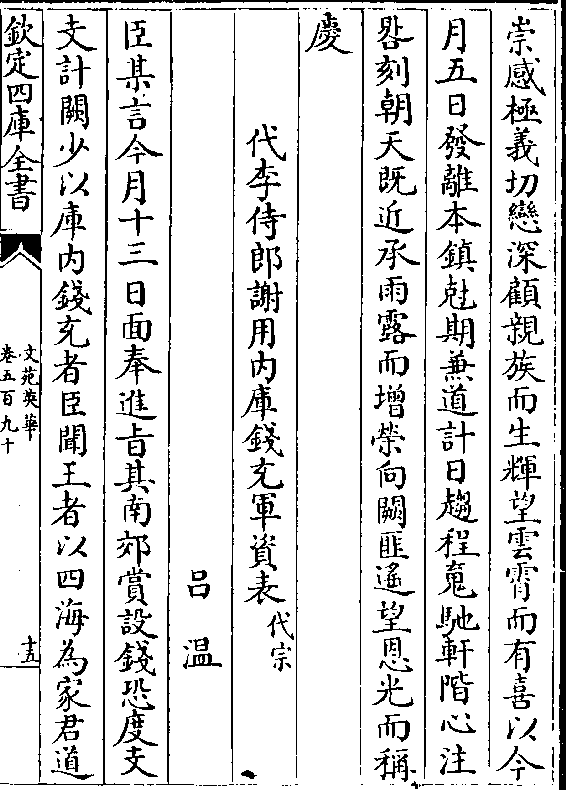 崇感極義切戀深顧親族而生輝望雲霄而有喜以今
月五日發離本鎮尅期兼道計日趨程䰟馳軒階心注
晷刻朝天既近承雨露而增榮向闕匪遙望恩光而稱
慶
代李侍郎謝用内庫錢充軍資表代宗
吕温
臣某言今月十三日面奉進㫖其南郊賞設錢恐度支
支計闕少以庫内錢充者臣聞王者以四海為家君道
欽定四庫全書
文苑英華
卷五百九十
十五